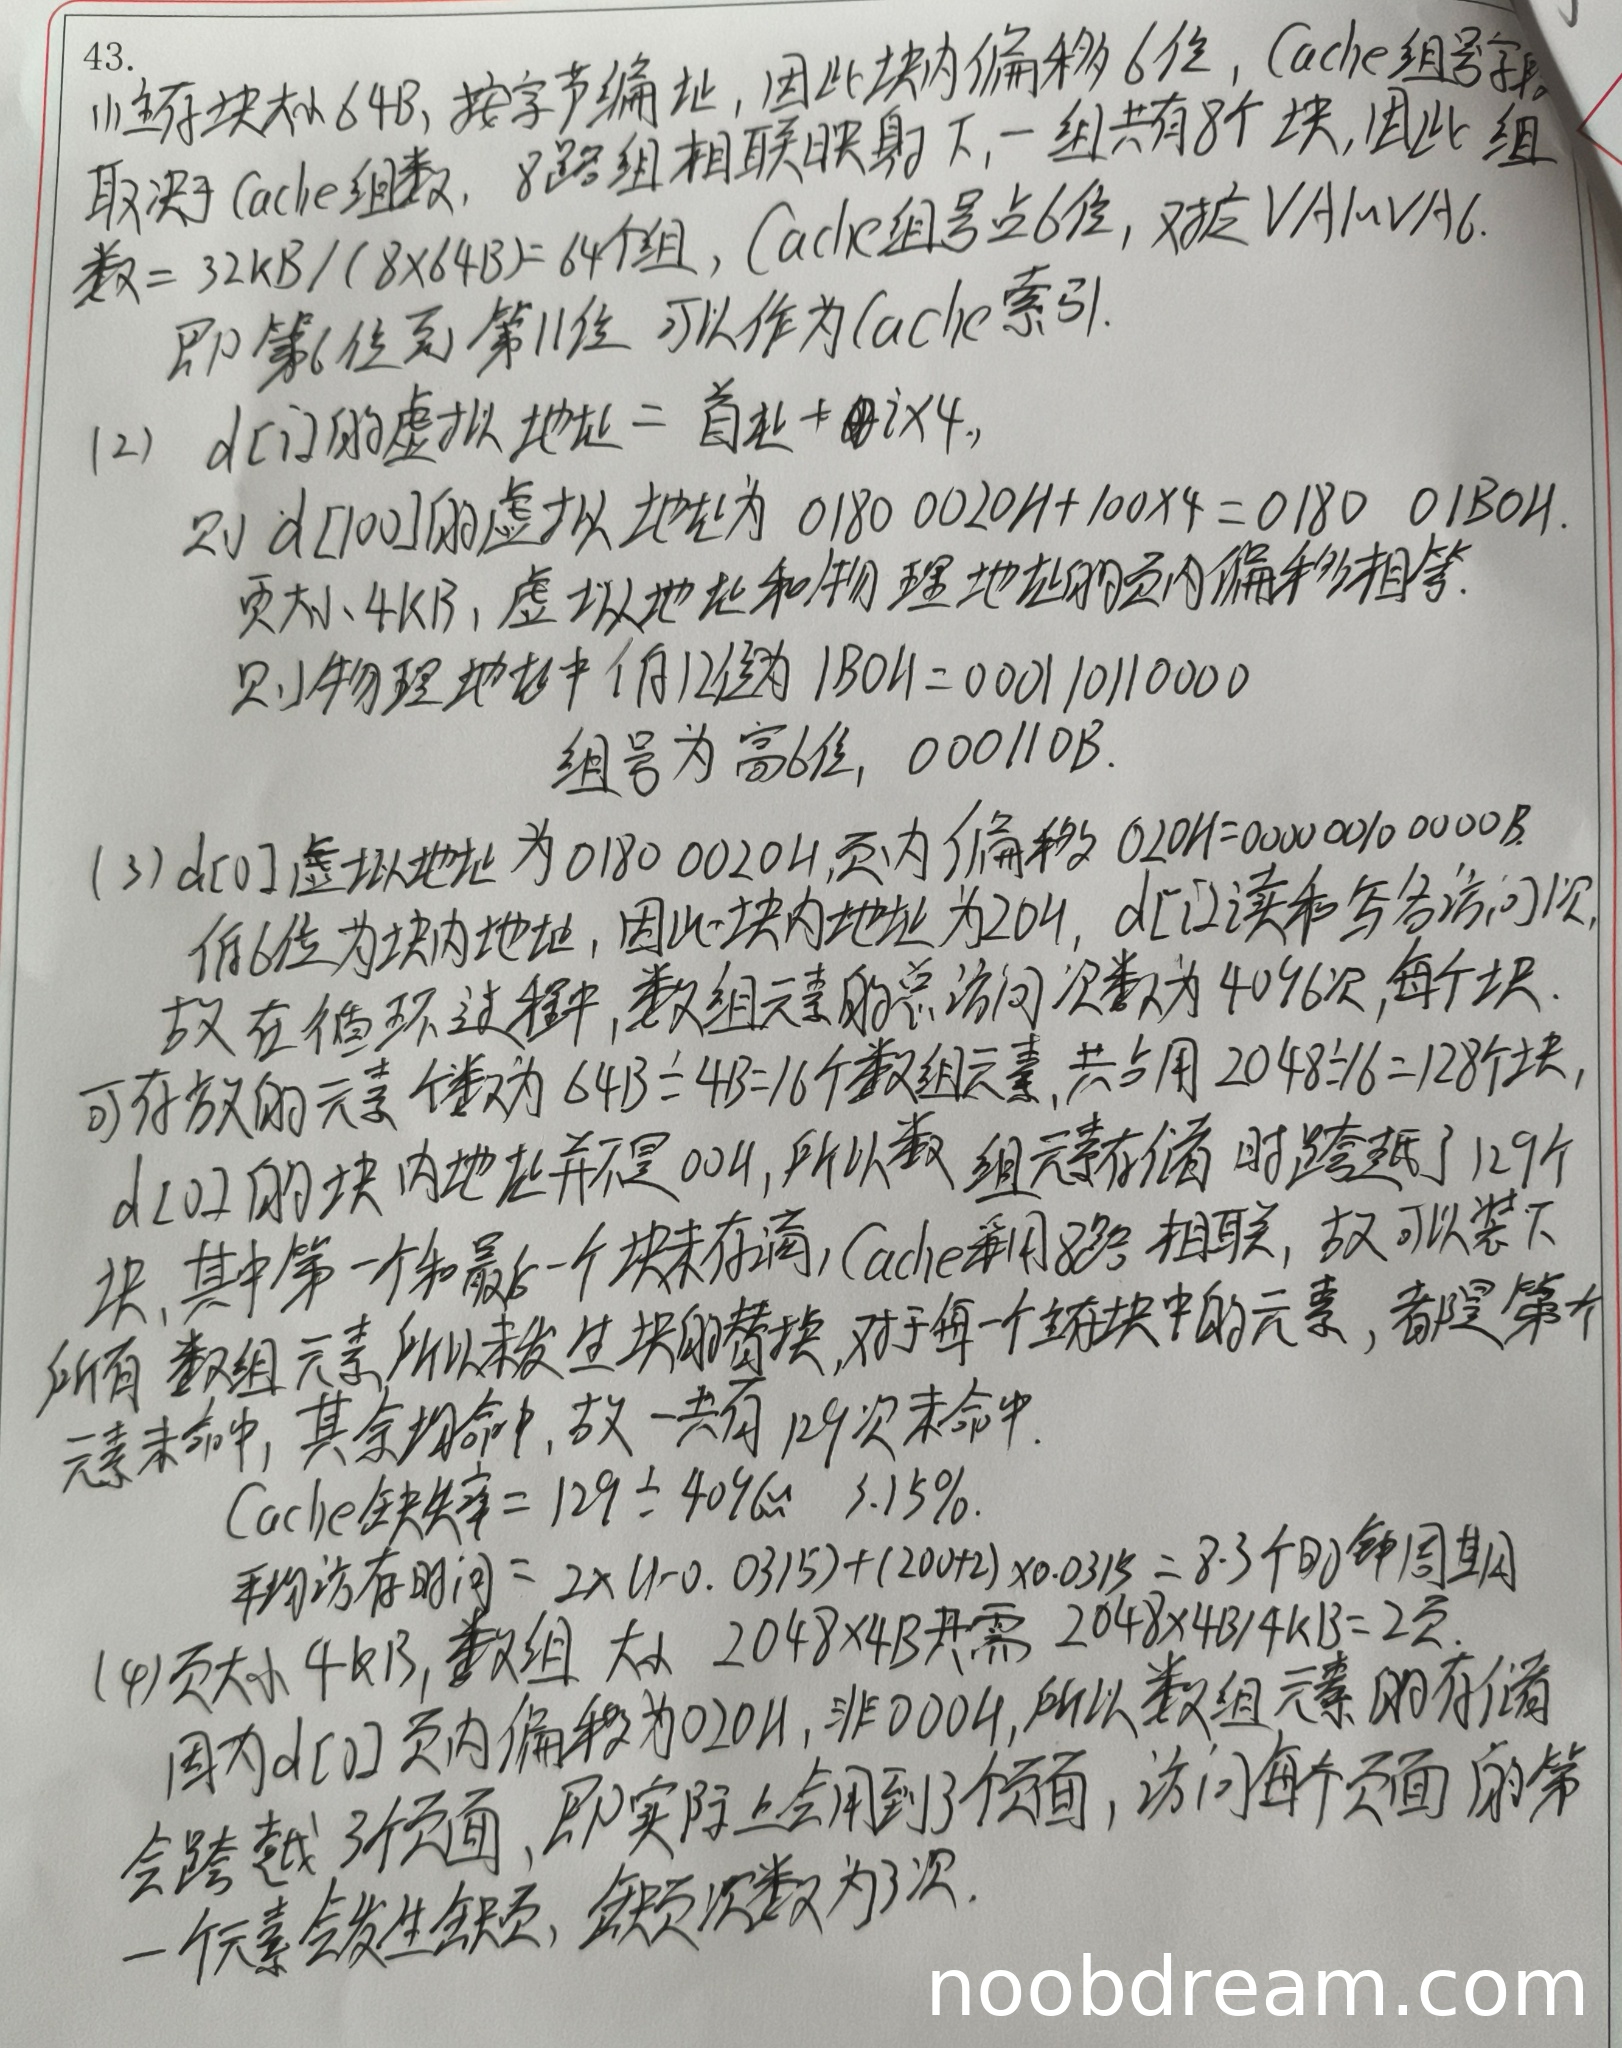 43.
(1)主存块大小64B,按字节编址,因此块内偏移6位,Cache组号字段
取决于Cache组数,8路组相联映射下,一组共有8个块,因此组
数=32KB/(8×64B)=64个组,Cache组号占6位,对应VA11~VA6.
即第6位到第11位可以作为Cache索引.
(2) d[i]的虚拟地址=首址+i×4,
则d[100]的虚拟地址为 0180 0020H+100×4=0180 01B0H.
页大小4KB,虚拟地址和物理地址的页内偏移相等.
则物理地址中低12位为1B0H=000110110000
组号为高6位,000110B.
(3)d[0]虚拟地址为0180 0020H,页内偏移020H=000000100000B.
低6位为块内地址,因此块内地址为20H,d[i]读和写各访问1次,
故在循环过程中,数组元素的总访问次数为4096次,每个块.
可存放的元素个数为64B÷4B=16个数组元素,共占用2048÷16=128个块,
d[0]的块内地址并不是00H,所以数组元素存储时跨越了129个
块,其中第一个和最后一个块未存满,Cache采用8路相联,故可以装下
所有数组元素,所以未发生块的替换,对于每一个主存块中的元素,都是第一个
元素未命中,其余均命中,故一共有129次未命中.
Cache缺失率=129÷4096≈3.15%.
平均访存时间=2×(1-0.0315)+(200+2)×0.0315=8.3个时钟周期
(4)页大小4KB,数组大小2048×4B共需2048×4B/4KB=2页.
因为d[0]页内偏移为020H,非000H,所以数组元素的存储
会跨越3个页面,即实际上会用到3个页面,访问每个页面的第
一个元素会发生缺页、缺页次数为3次.
noobdream.com